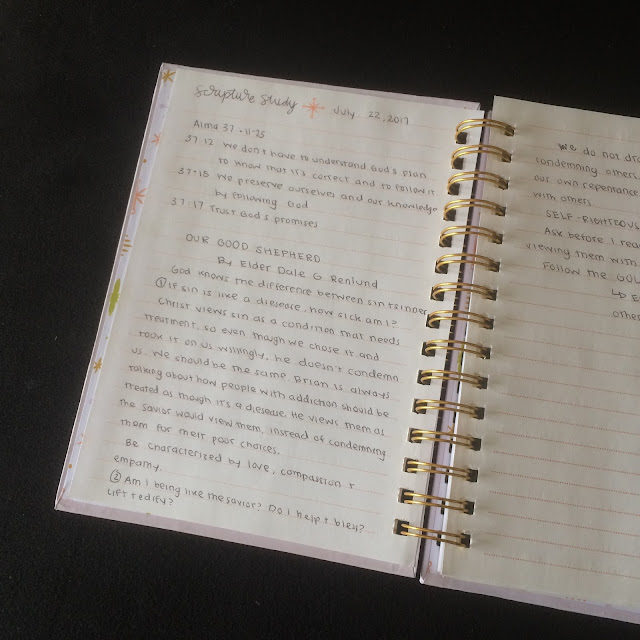 scripture study July 22, 2017
Alma 37:11-25
37:12 We don't have to understand God's plan
to know that it's correct and to follow it
37:15 We preserve ourselves and our knowledge
by following God
37:17 Trust God's promises
OUR GOOD SHEPHERD
By Elder Dale G Renlund
God knows the difference between sin + sinner
① If sin is like a disease, how sick am I?
Christ views sin as a condition that needs
treatment, so even though we chose it and
took it on us willingly, he doesn't condemn
us. We should be the same Brian is always
talking about how people with addiction should be
treated as though it's a disease. He views them as
the savior would view them, instead of condemning
them for their poor choices.
Be characterized by love, compassion +
empathy.
② Am I being like the savior? Do I help + bless?
Lift + edify?
We do not
condemning others
our own repentance
with others
SELF-RIGHTEOUS
Ask before I
viewing them with
Follow the